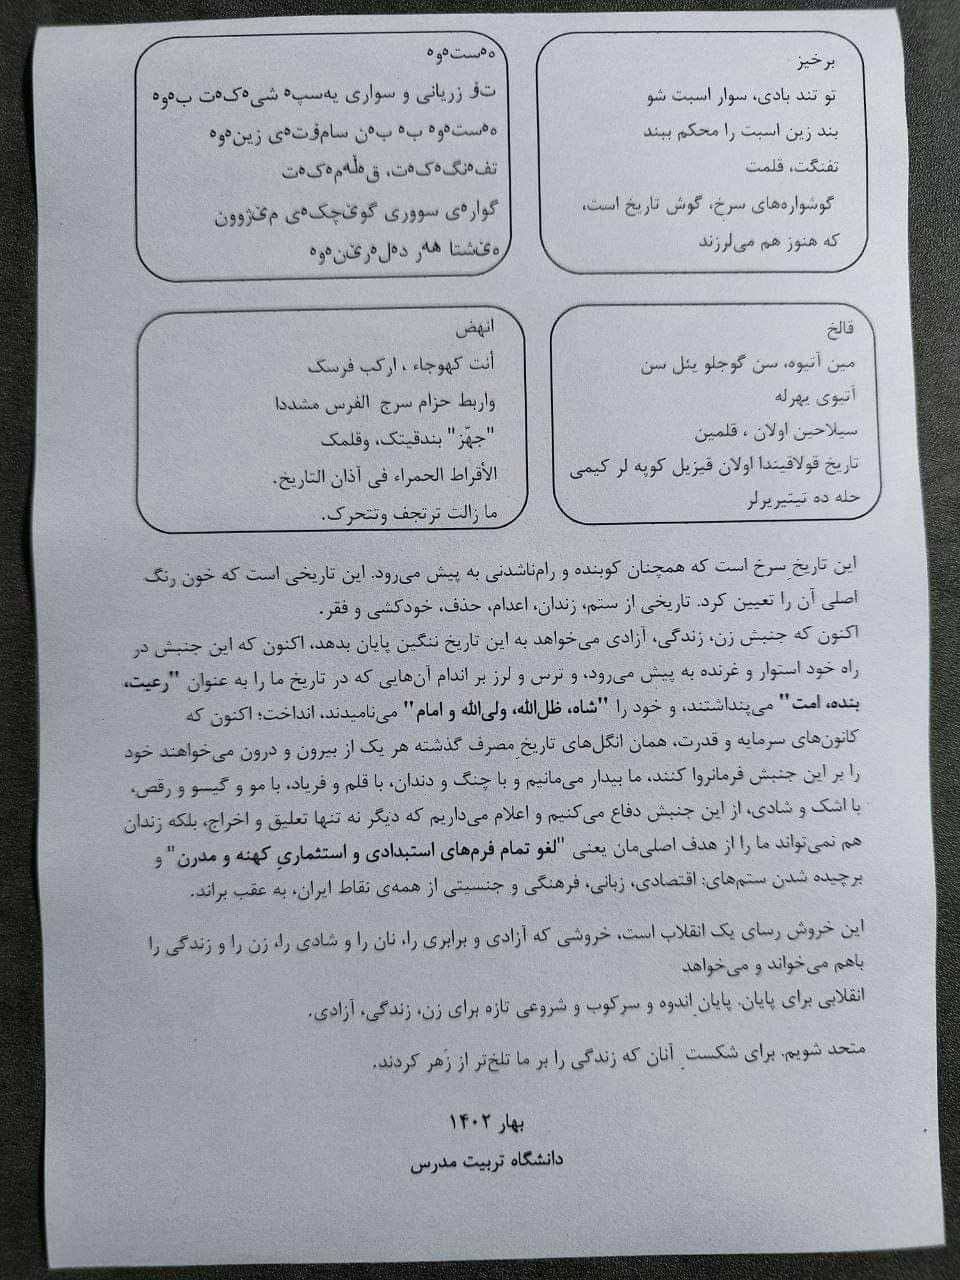 برخیز
تو تند بادی، سوار اسبت شو
بند زین اسبت را محکم ببند
تفنگت، قلمت
گوشواره‌های سرخ، گوش تاریخ است،
که هنوز هم می‌لرزند
ھەستەوە
تۆ زریانی و سواری یەسپە شێەکەت بەوە
ھەستەوە بە بەن سامۆتەی زینەوە
تفەنگەکەت، قەڵەمەکەت
گوارەی سووری گوێچکەی مێژوون
ھێشتا ھەر دەلەرێنەوە
قالخ
مین آتیوه، سن گوجلو یئل سن
آتیوی یهرله
سیلاحین اولان ، قلمین
تاریخ قولاقیندا اولان قیزیل کوپه لر کیمی
حله ده تیتیریرلر
انهض
أنت کهوجاء ، ارکب فرسک
واربط حزام سرج الفرس مشددا
"جهّز" بندقیتک، وقلمک
الأقراط الحمراء فی آذان التاریخ.
ما زالت ترتجف وتتحرک.
این تاریخِ سرخ است که همچنان کوبنده و رام‌ناشدنی به پیش می‌رود. این تاریخی است که خون رنگ
اصلی آن را تعیین کرد. تاریخی از ستم، زندان، اعدام، حذف، خودکشی و فقر.
اکنون که جنبش زن، زندگی، آزادی می‌خواهد به این تاریخ ننگین پایان بدهد، اکنون که این جنبش در
راه خود استوار و غرنده به پیش می‌رود، و ترس و لرز بر اندام آن‌هایی که در تاریخ ما را به عنوان "رعیت،
بنده، امت" می‌پنداشتند، و خود را "شاه، ظل‌الله، ولی‌الله و امام" می‌نامیدند، انداخت؛ اکنون که
کانون‌های سرمایه و قدرت، همان انگل‌های تاریخِ مصرف گذشته هر یک از بیرون و درون می‌خواهند خود
را بر این جنبش فرمانروا کنند، ما بیدار می‌مانیم و با چنگ و دندان، با قلم و فریاد، با مو و گیسو و رقص،
با اشک و شادی، از این جنبش دفاع می‌کنیم و اعلام می‌داریم که دیگر نه تنها تعلیق و اخراج، بلکه زندان
هم نمی‌تواند ما را از هدف اصلی‌مان یعنی "لغو تمام فرم‌های استبدادی و استثماریِ کهنه و مدرن" و
برچیده شدن ستم‌های: اقتصادی، زبانی، فرهنگی و جنسیتی از همه‌ی نقاط ایران، به عقب براند.
این خروش رسای یک انقلاب است، خروشی که آزادی و برابری را، نان را و شادی را، زن را و زندگی را
باهم می‌خواند و می‌خواهد
انقلابی برای پایان. پایانِ اندوه و سرکوب و شروعی تازه برای زن، زندگی، آزادی.
متحد شویم. برای شکستِ آنان که زندگی را بر ما تلخ‌تر از زَهر کردند.
بهار ۱۴۰۲
دانشگاه تربیت مدرس